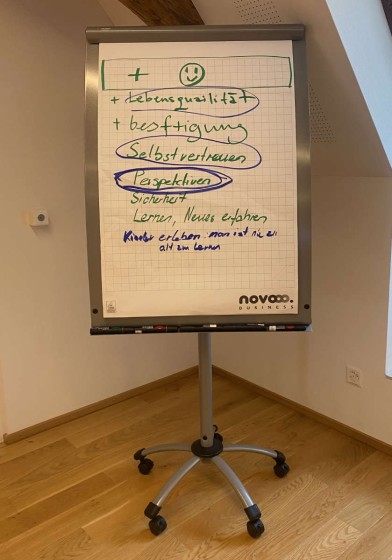 +
+ Lebensquailität
+ besftigung
Selbstvertrauen
Perspektiven
Sicherheit
Lernen, Neues erfahren
Kinder erleben man ist nie zu
alt zum Lernen
novooo.
BUSINESS